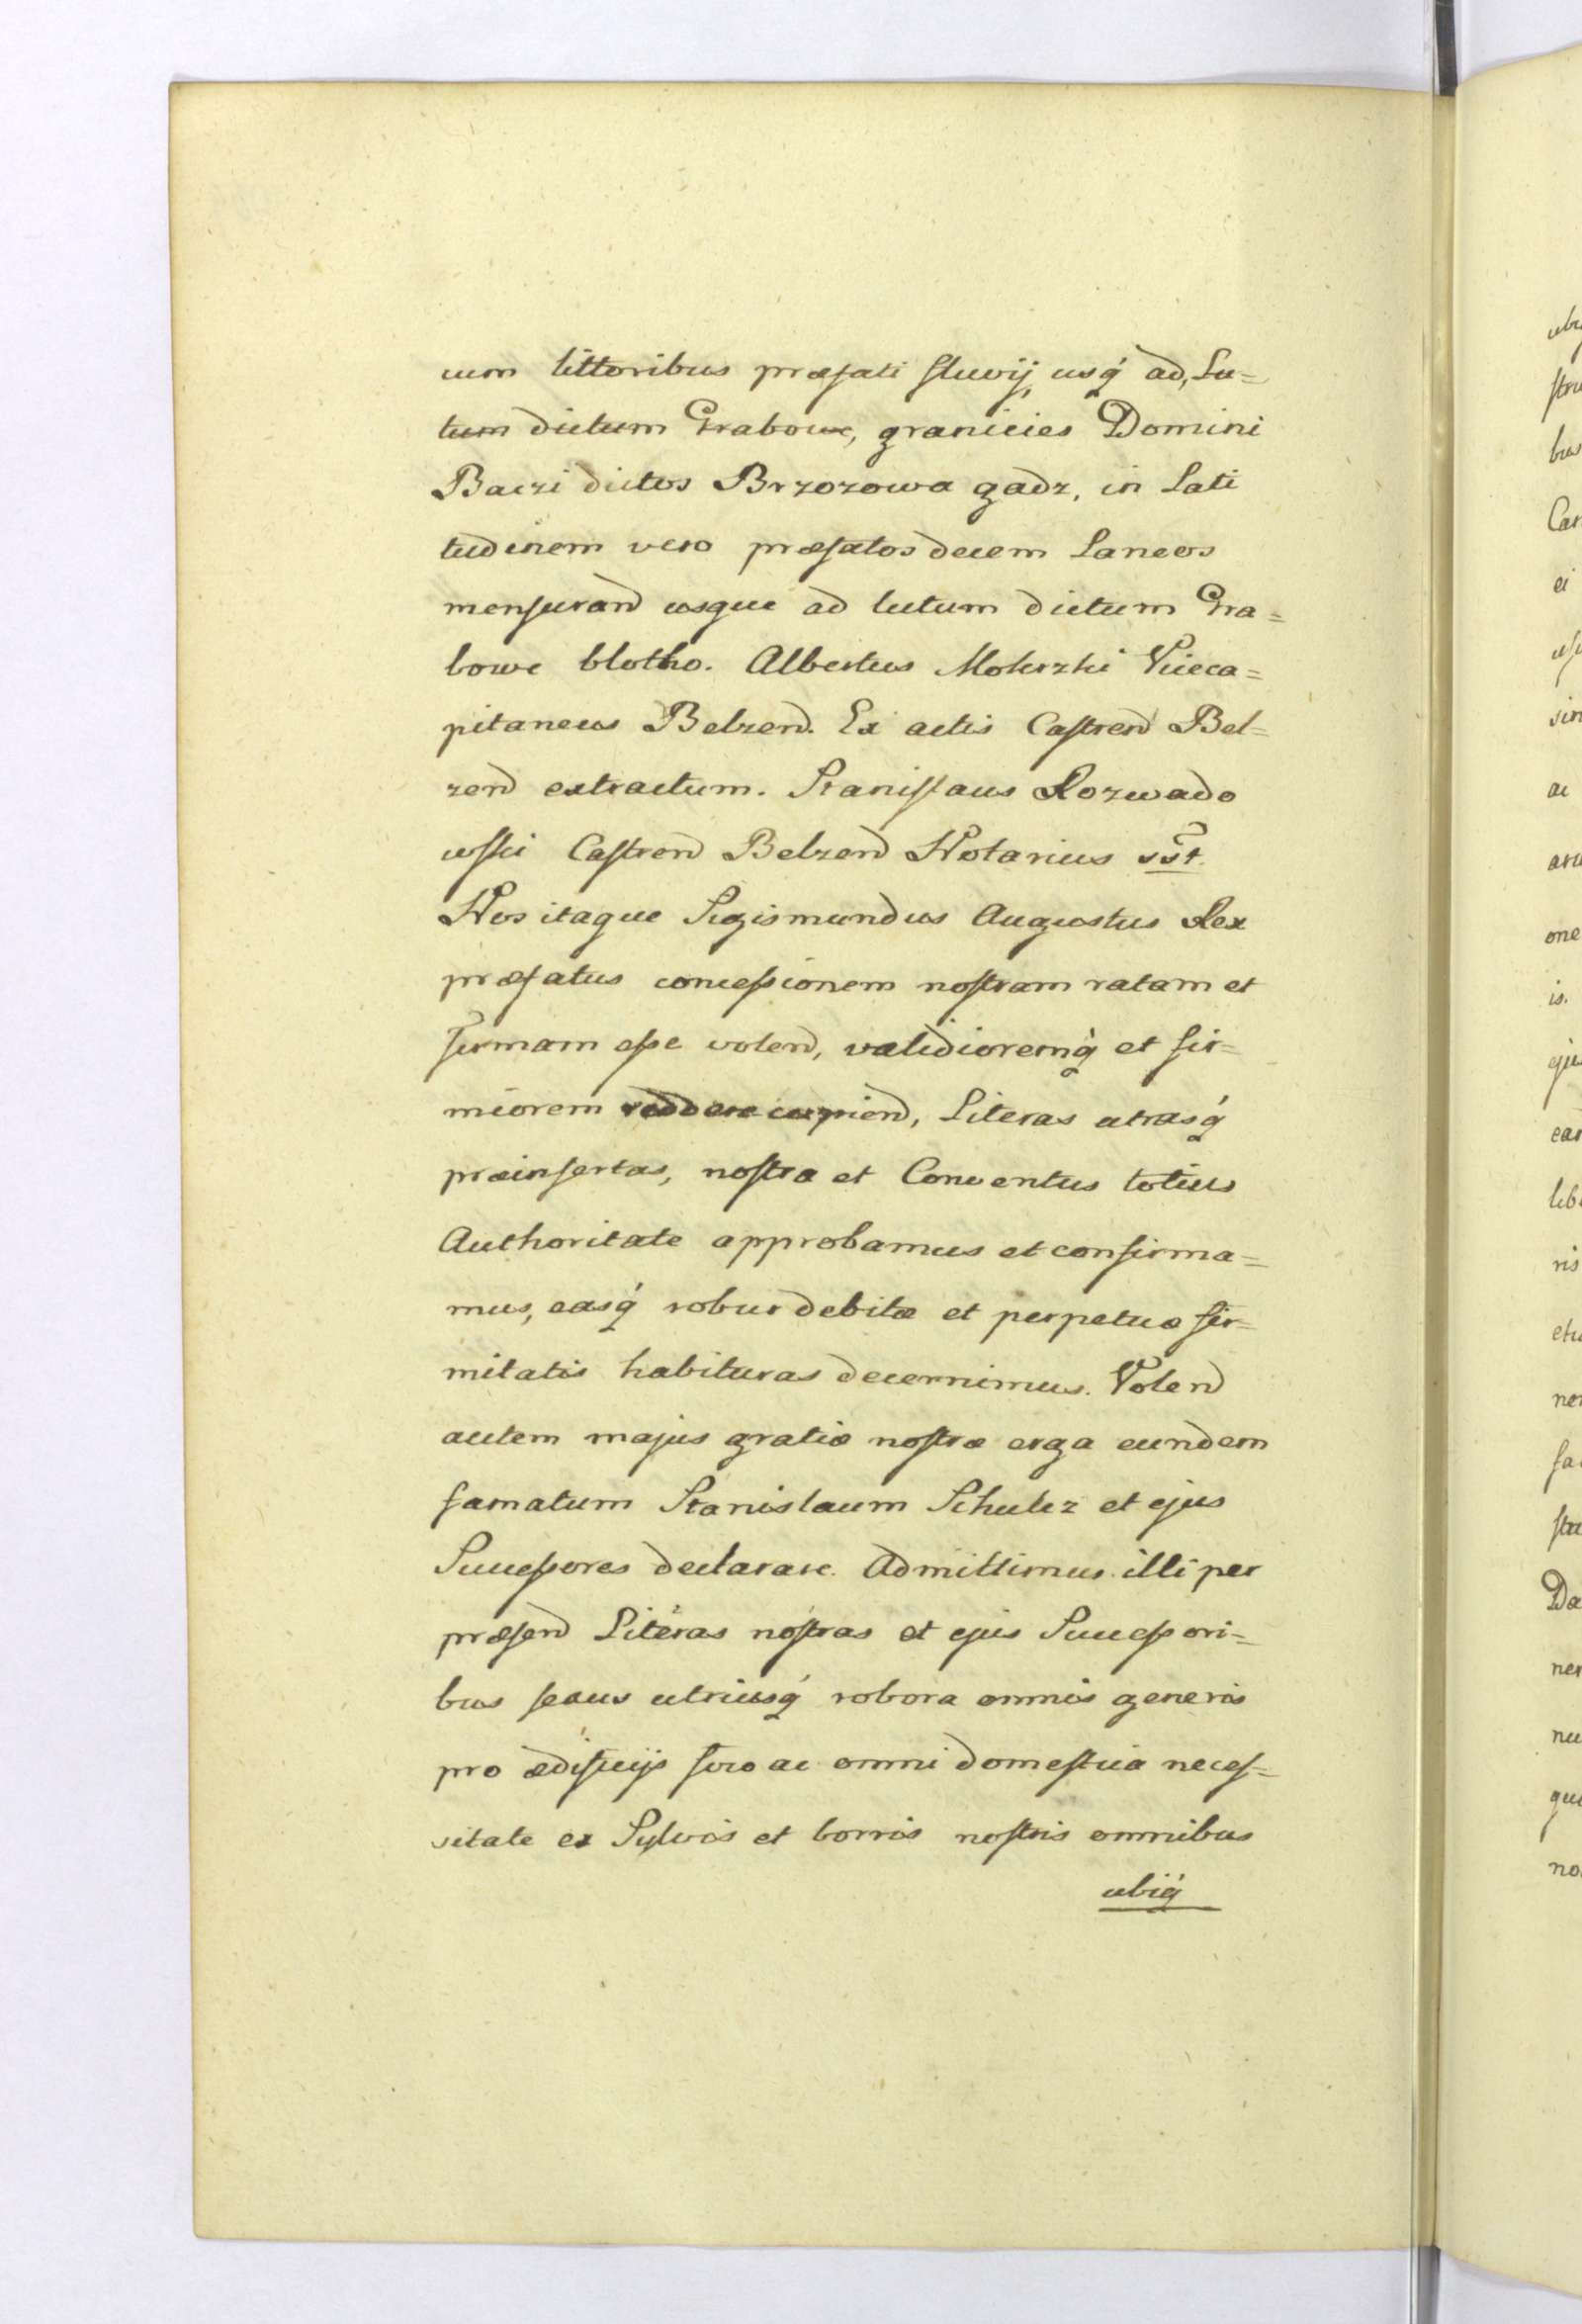 cum littoribus præfati fluvij usq́ ad, Lu=
tum dictum Grabowe, granicies Domini
Baczi dictos Brzozowa gadz, in Lati
tudinem vero præfatos decem Laneos
mensurand usque ad lutum dictum Gra=
bowe blotho. Albertus Mokrzki Vieca=
pitaneus Belzend. Ex actis Castrend Bel=
zend extractum. Stanislaus Rozwado
wski Castrend Belzend Notarius sst.
Nos itaque Sigismundus Augustus Rex
præfatus concessionem nostram ratam et
firmam esse volend, validioremq́ et fir=
miorem reddere cupiend, Literas utrasq́
præinsertas, nostra et Conventus totius
Authoritate approbamus et confirma=
mus, easq́ robur debitæ et perpetuæ fir=
mitatis habituras decernimus. Volend
autem majus gratiæ nostræ erga eundem
famatum Stanislaum Schulcz et ejus
Successores declarare. Admittimus illi per
præsend Literas nostras et ejus Successori=
bus sexus utriusq́ robora omnis generis
pro ædificijs suo ac omni domestica neces=
sitate ex Sylvis et borris nostris omnibus
ubiq́